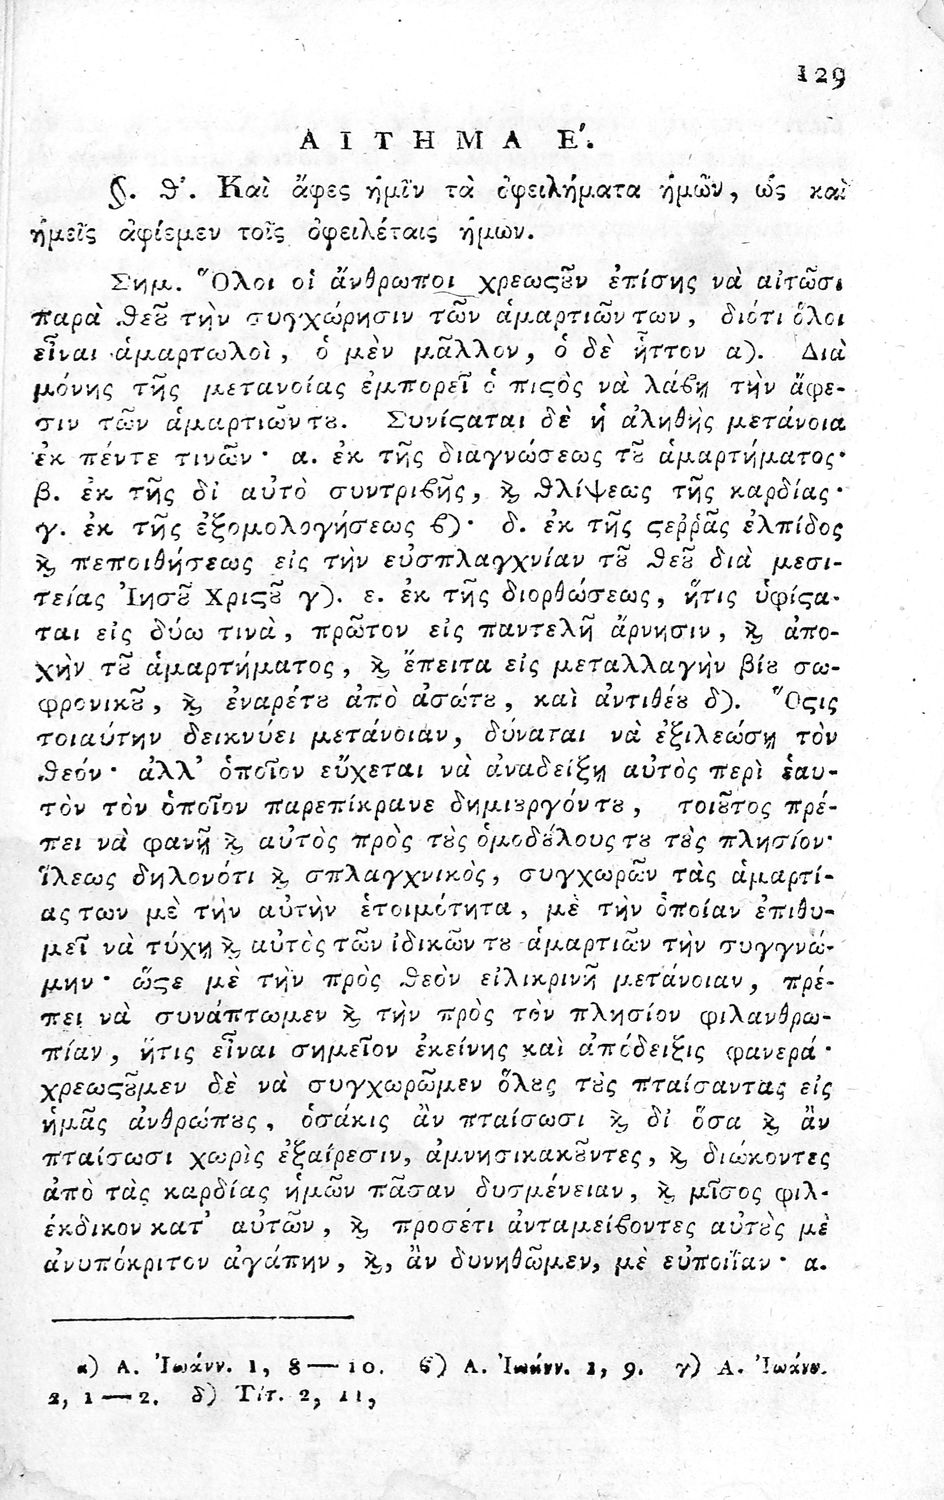 129
ΑΙΤΗΜΑ Ε΄.
§. θ'. Καὶ ἄφες ἡμῖν τὰ ὀφειλήματα ἡμῶν, ὡς καὶ
ἡμεῖς ἀφίεμεν τοῖς ὀφειλέταις ἡμων.
Σημ. Ὅλοι οἱ ἄνθρωποι χρεωϛȣ͂ν ἐπίσης νὰ αἰτῶσι
παρὰ Θεȣ͂ τὴν συγχώρησιν τῶν ἁμαρτιῶν των, διότι ὅλοι
εἶναι ἁμαρτωλοὶ, ὁ μὲν μᾶλλον, ὁ δὲ ἧττον α). Διὰ
μόνης τῆς μετανοίας ἐμπορεῖ ὁ πιϛὸς νὰ λάϐῃ τὴν ἄφε-
σιν τῶν ἁμαρτιῶν τȣ. Συνίϛαται δὲ ἡ ἀληθὴς μετάνοια
ἐκ πέντε τινῶν· α. ἐκ τῆς διαγνώσεως τȣ͂ ἁμαρτήματος·
β. ἐκ τῆς δἰ αὐτὸ συντριϐῆς, ϗ̀ θλίψεως τῆς καρδίας·
γ. ἐκ τῆς ἐξομολογήσεως ϐ)· δ. ἐκ τῆς ϛεῤῥᾶς ἐλπίδος
ϗ̀ πεποιθήσεως εἰς τὴν εὐσπλαγχνίαν τȣ͂ Θεȣ͂ διὰ μεσι-
τείας Ἰησȣ͂ Χριϛȣ͂ γ). ε. ἐκ τῆς διορθώσεως, ἥτις ὑφίϛα-
ται εἰς δύω τινὰ, πρῶτον εἰς παντελῆ ἄρνησιν, ϗ̀ ἀπο-
χὴν τȣ͂ ἁμαρτήματος, ϗ̀ ἔπειτα εἰς μεταλλαγὴν βίȣ σω-
φρονικȣ͂, ϗ̀ ἐναρέτȣ ἀπὸ ἀσώτȣ, καὶ ἀντιθέȣ δ). Ὅϛις
τοιαύτην δεικνύει μετάνοιαν, δύναται νὰ ἐξιλεώσῃ τὸν
Θεόν· ἀλλ' ὁποῖον εὔχεται νὰ ἀναδείξῃ αὐτὸς περὶ ἑαυ-
τὸν τὸν ὁποῖον παρεπίκρανε δημιȣργόν τȣ, τοιȣ͂τος πρέ-
πει νὰ φανῇ ϗ̀ αὐτὸς πρὸς τȣ̀ς ὁμοδȣ́λους τȣ τȣ̀ς πλησίον·
ἵλεως δηλονότι ϗ̀ σπλαγχνικὸς, συγχωρῶν τὰς ἁμαρτί-
ας των μὲ τὴν αὐτὴν ἑτοιμότητα, μὲ τὴν ὁποίαν ἐπιθυ-
μεῖ νὰ τύχῃ ϗ̀ αὐτὸς τῶν ἰδικῶν τȣ ἁμαρτιῶν τὴν συγγνώ-
μην· ὥϛε μὲ τὴν πρὸς Θεὸν εἰλικρινῆ μετάνοιαν, πρέ-
πει νὰ συνάπτωμεν ϗ̀ τὴν πρὸς τὸν πλησίον φιλανθρω-
πίαν, ἥτις εἶναι σημεῖον ἐκείνης καὶ ἀπόδειξις φανερά·
χρεωϛȣ͂μεν δὲ νὰ συγχωρῶμεν ὅλȣς τȣ̀ς πταίσαντας εἰς
ἡμᾶς ἀνθρώπȣς, ὁσάκις ἂν πταίσωσι ϗ̀ δἰ ὅσα ϗ̀ ἂν
πταίσωσι χωρὶς ἐξαίρεσιν, ἀμνησικακȣ͂ντες, ϗ̀ διώκοντες
ἀπὸ τὰς καρδίας ἡμῶν πᾶσαν δυσμένειαν, ϗ̀ μῖσος φιλ-
έκδικον κατ' αὐτῶν, ϗ̀ προσέτι ἀνταμείϐοντες αὐτȣ̀ς μὲ
ἀνυπόκριτον ἀγάπην, ϗ̀, ἂν δυνηθῶμεν, μὲ εὐποιΐαν· α.
α) Α. Ἰωάνν. 1, 8—10. ϐ) Α. Ἰωάνν. 1, 9. γ) Α. Ἰωάνν.
2, 1—2. δ) Τίτ. 2, 11,